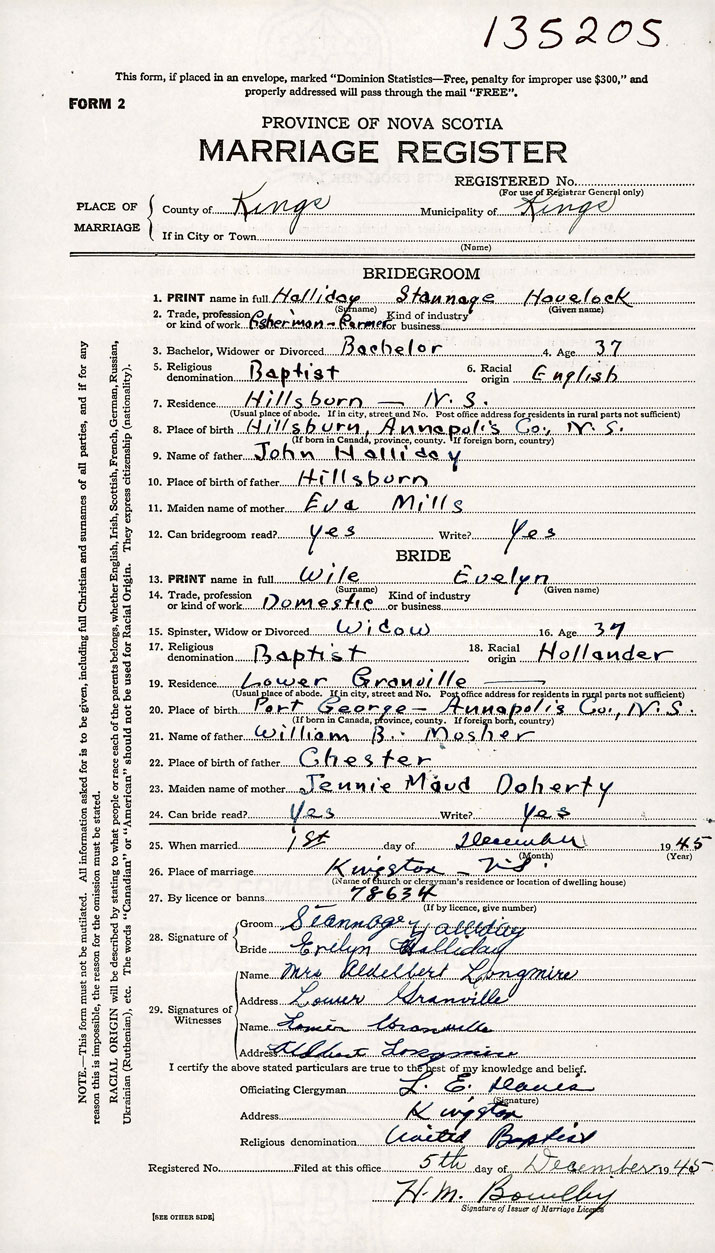 135205
This form, if placed in an envelope, marked "Dominion Statistics—Free, penalty for improper use $300," and
properly addressed will pass through the mail "FREE".
FORM 2
PROVINCE OF NOVA SCOTIA
MARRIAGE REGISTER
REGISTERED No.
(For use of Registrar General only)
PLACE OF MARRIAGE
County of Kings Municipality of Kings
If in City or Town
(Name)
BRIDEGROOM
1. PRINT name in full Halliday Stannage Havelock
(Surname) (Given name)
2. Trade, profession or kind of work Fisherman - Farmer Kind of industry or business
3. Bachelor, Widower or Divorced Bachelor 4. Age 37
5. Religious denomination Baptist 6. Racial origin English
7. Residence Hillsburn — N.S.
(Usual place of abode. If in city, street and No. Post office address for residents in rural parts not sufficient)
8. Place of birth Hillsburn, Annapolis Co., N.S.
(If born in Canada, province, county. If foreign born, country)
9. Name of father John Halliday
10. Place of birth of father Hillsburn
11. Maiden name of mother Eva Mills
12. Can bridegroom read? Yes Write? Yes
BRIDE
13. PRINT name in full Wile Evelyn
(Surname) (Given name)
14. Trade, profession or kind of work Domestic Kind of industry or business
15. Spinster, Widow or Divorced Widow 16. Age 37
17. Religious denomination Baptist 18. Racial origin Hollander
19. Residence Lower Granville —
(Usual place of abode. If in city, street and No. Post office address for residents in rural parts not sufficient)
20. Place of birth Port George - Annapolis Co., N.S.
(If born in Canada, province, county. If foreign born, country)
21. Name of father William B. Mosher
22. Place of birth of father Chester
23. Maiden name of mother Jennie Maud Doherty
24. Can bride read? Yes Write? Yes
25. When married 1st day of December 1945
(Month) (Year)
26. Place of marriage Kingston - N.S.
(Name of church or clergyman's residence or location of dwelling house)
27. By licence or banns 78634
(If by licence, give number)
28. Signature of
Groom Stannage Halliday
Bride Evelyn Halliday
29. Signatures of Witnesses
Name Mrs Aldelbert Longmire
Address Lower Granville
Name Lower Granville
Address Longmire
I certify the above stated particulars are true to the best of my knowledge and belief.
Officiating Clergyman L. E. Davis
(Signature)
Address Kingston
Religious denomination United Baptist
Registered No. Filed at this office 5th day of December 1945
H. M. Bowlby
Signature of Issuer of Marriage Licence
[SEE OTHER SIDE]
NOTE.—This form must not be mutilated. All information asked for is to be given, including full Christian and surnames of all parties, and if for any
reason this is impossible, the reason for the omission must be stated.
RACIAL ORIGIN will be described by stating to what people or race each of the parents belongs, whether English, Irish, Scottish, French, German, Russian,
Ukrainian (Ruthenian), etc. The words "Canadian" or "American" should not be used for Racial Origin. They express citizenship (nationality).